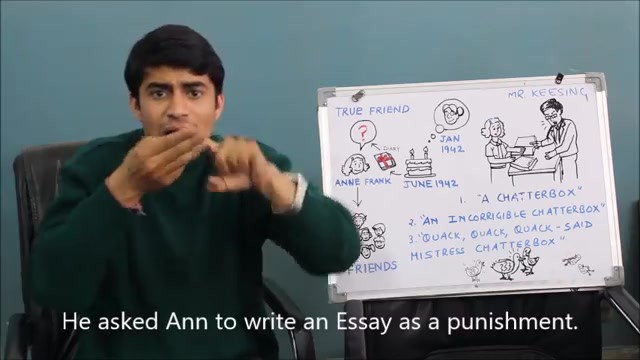 MR. KEESING
TRUE FRIEND
?
JAN
1942
DIARY
ANNE FRANK
JUNE 1942
FRIENDS
1. "A CHATTERBOX"
2. "AN INCORRIGIBLE CHATTERBOX"
3. "QUACK, QUACK, QUACK - SAID
MISTRESS CHATTERBOX"
He asked Ann to write an Essay as a punishment.